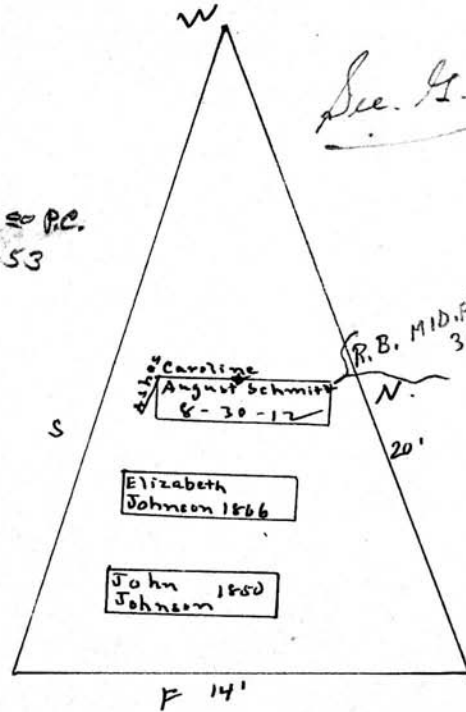 W
Sec. G.
P.C.
53
R. B. MID. F
3
N.
Ashes Caroline
August Schmitt
8 - 30 - 12
S
20'
Elizabeth
Johnson 1866
John 1850
Johnson
F 14'